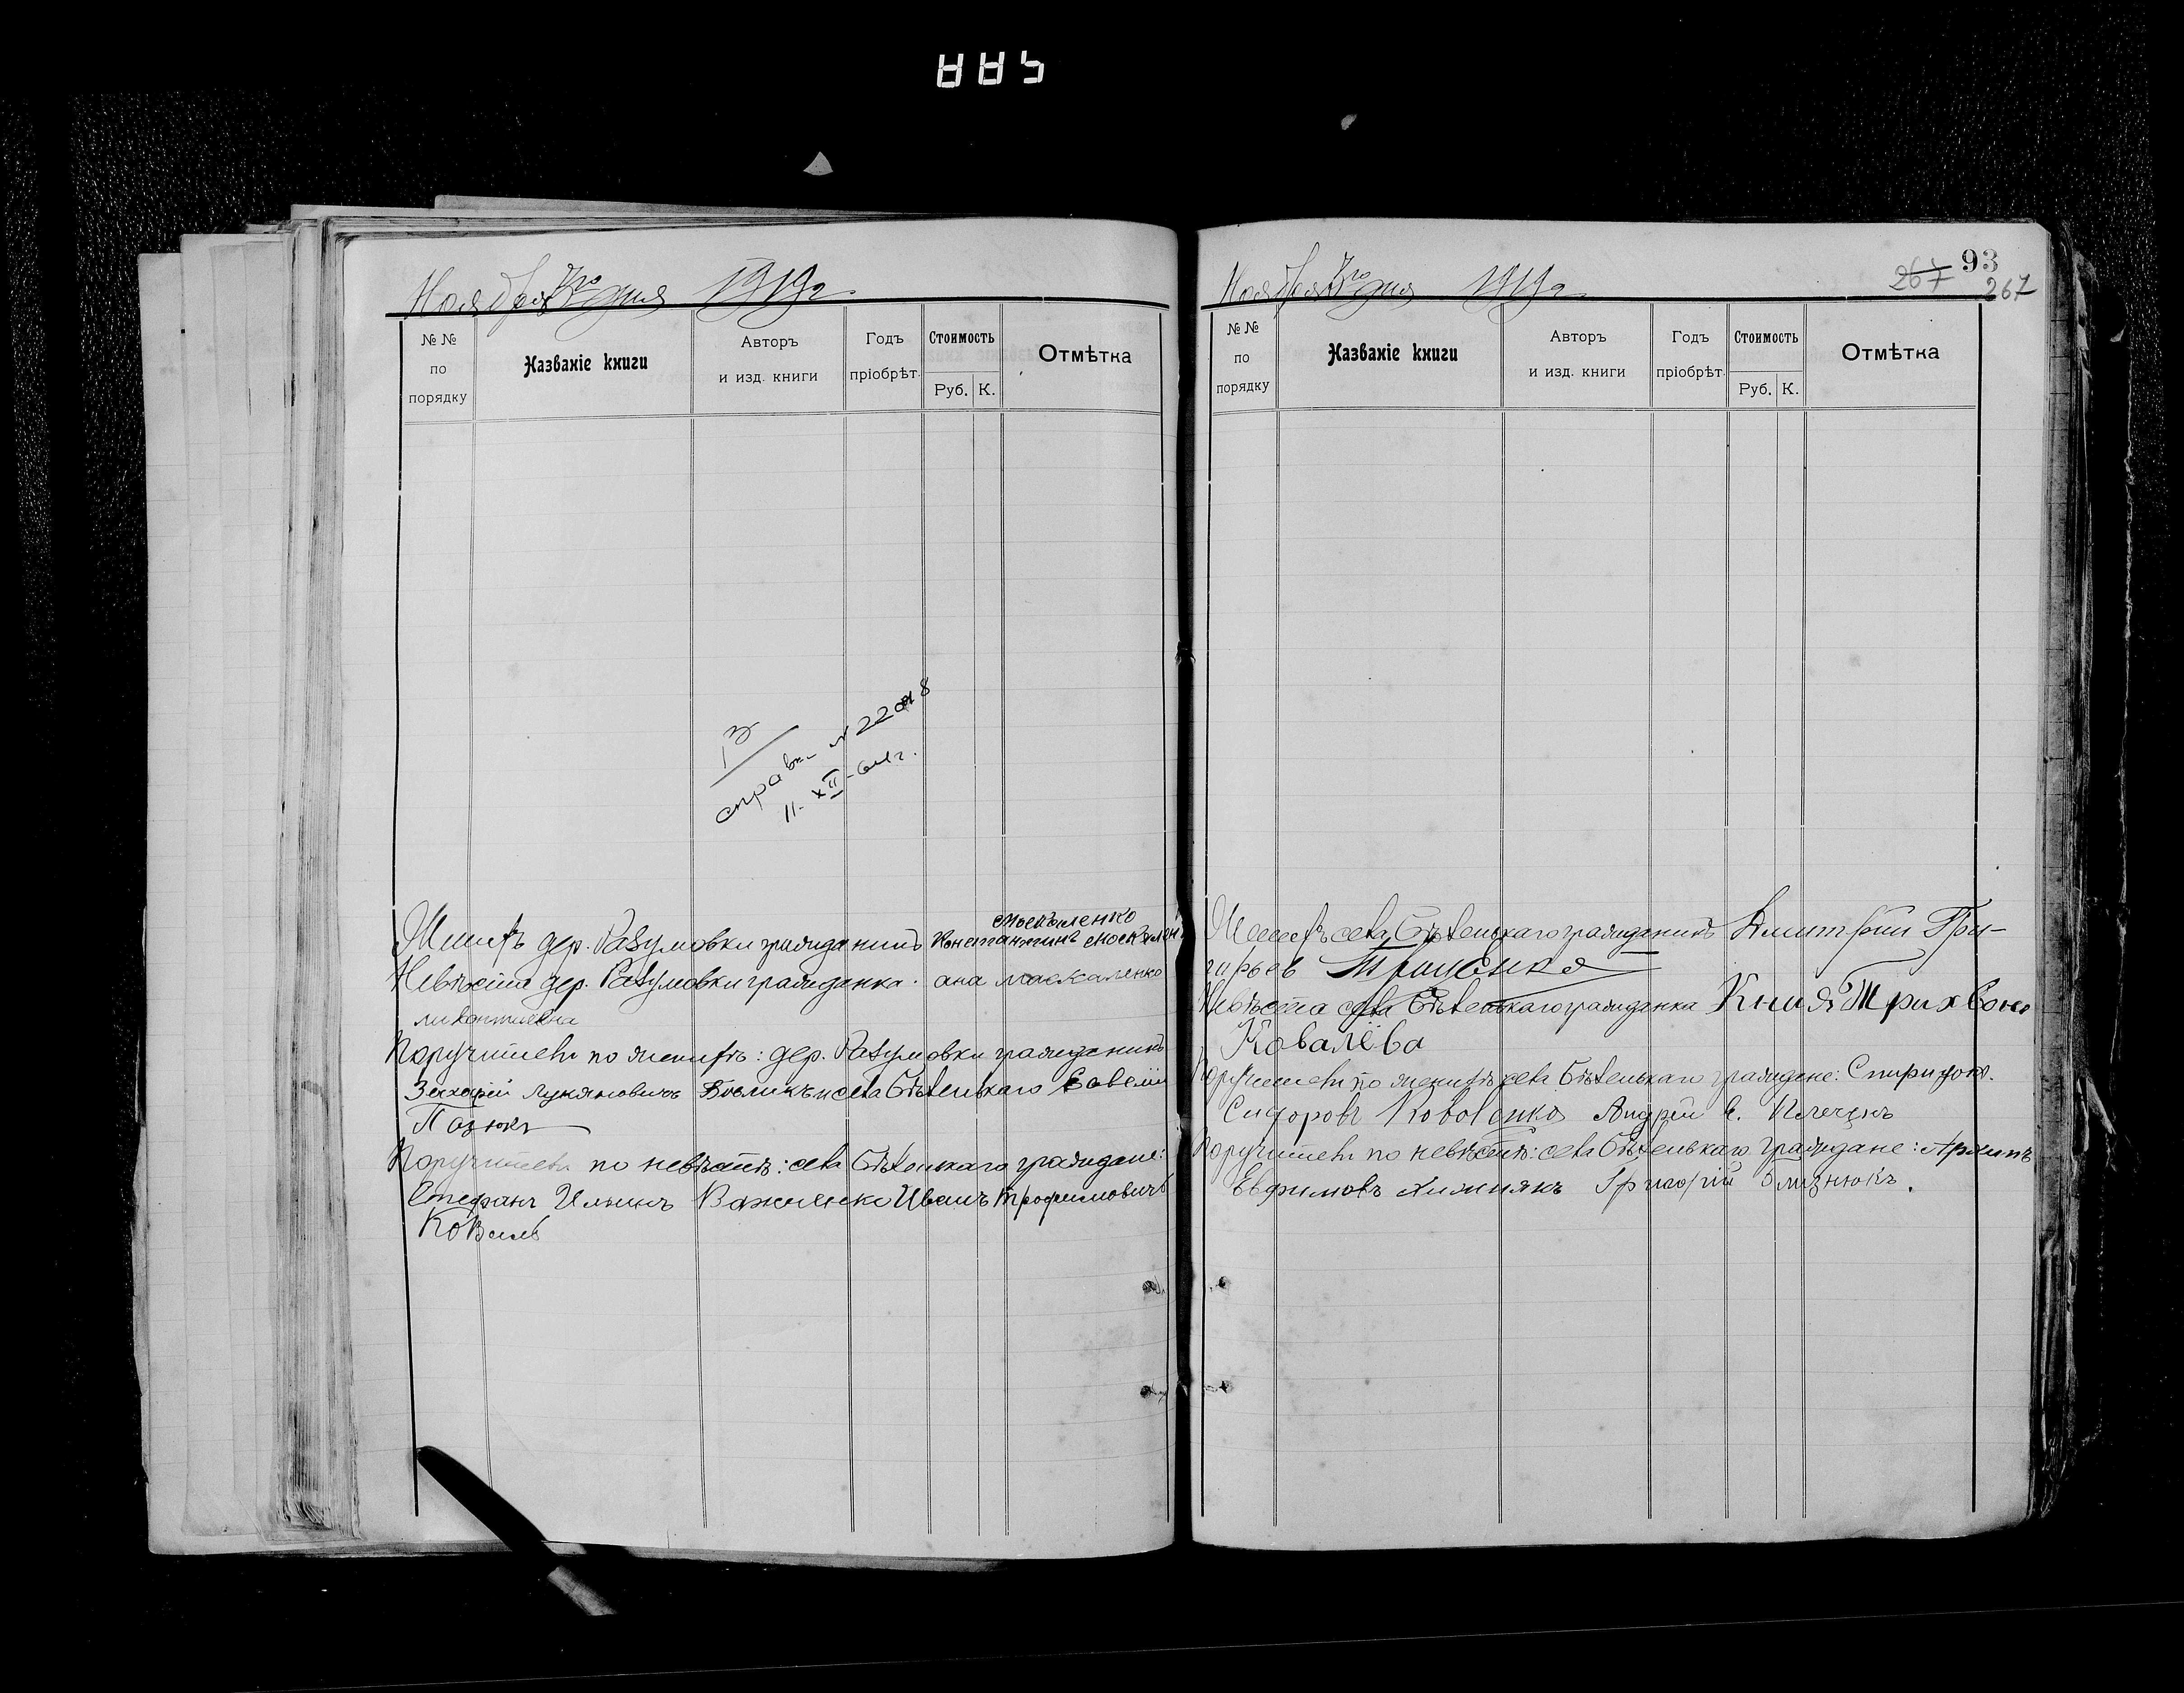 885
Ноября 3го дня 1919 г.
№№ по порядку
Названіе книги
Авторъ и изд. книги
Годъ пріобрѣт.
Стоимость
Руб. К.
Отмѣтка
справк № 22
11-XII-
Москаленко
Женихъ дер. Разумовки гражданинъ Константинъ
Невѣста дер. Разумовки гражданка ана москаленко
Поручители по женихѣ: дер. Разумовки гражданинъ
Захарій Лукяновичъ села Бѣленькаго
Пазюкъ
Поручители по невѣстѣ: села Бѣленькаго граждане:
Стефанъ Ильинъ Важненко Иванъ Трофимовичъ
Коваль
Ноября 3го дня 1919 г.
93
267 267
№№ по порядку
Названіе книги
Авторъ и изд. книги
Годъ пріобрѣт.
Стоимость
Руб. К.
Отмѣтка
Женихъ села Бѣленькаго гражданинъ Дмитрій Гри-
гирьев
Невѣста села Бѣленькаго гражданка
Ковалёва
Поручители по женихѣ села Бѣленькаго граждане: Спиридон.
Сидоровъ Андрей
Поручители по невѣстѣ: села Бѣленькаго граждане: Архипъ
Евфимовъ Григорій Близнюкъ.